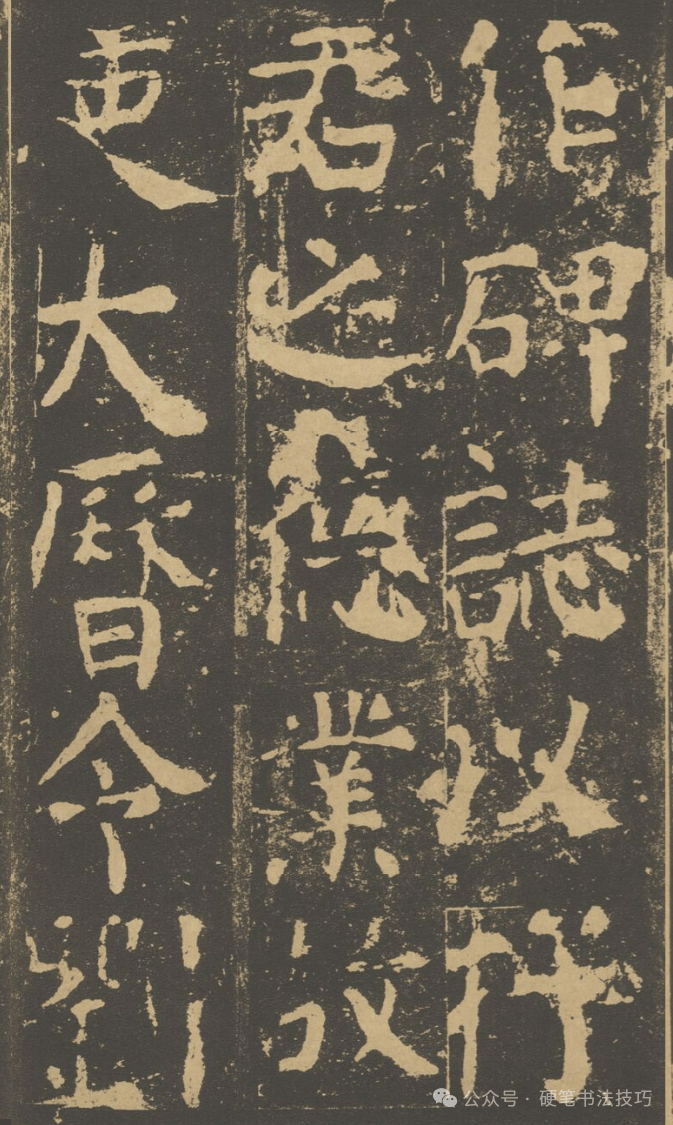 作碑誌以
君之業故
吏大曆令劉
公众号·硬笔书法技巧